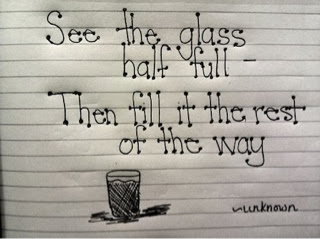 See the glass
half full -
Then fill it the rest
of the way
~unknown